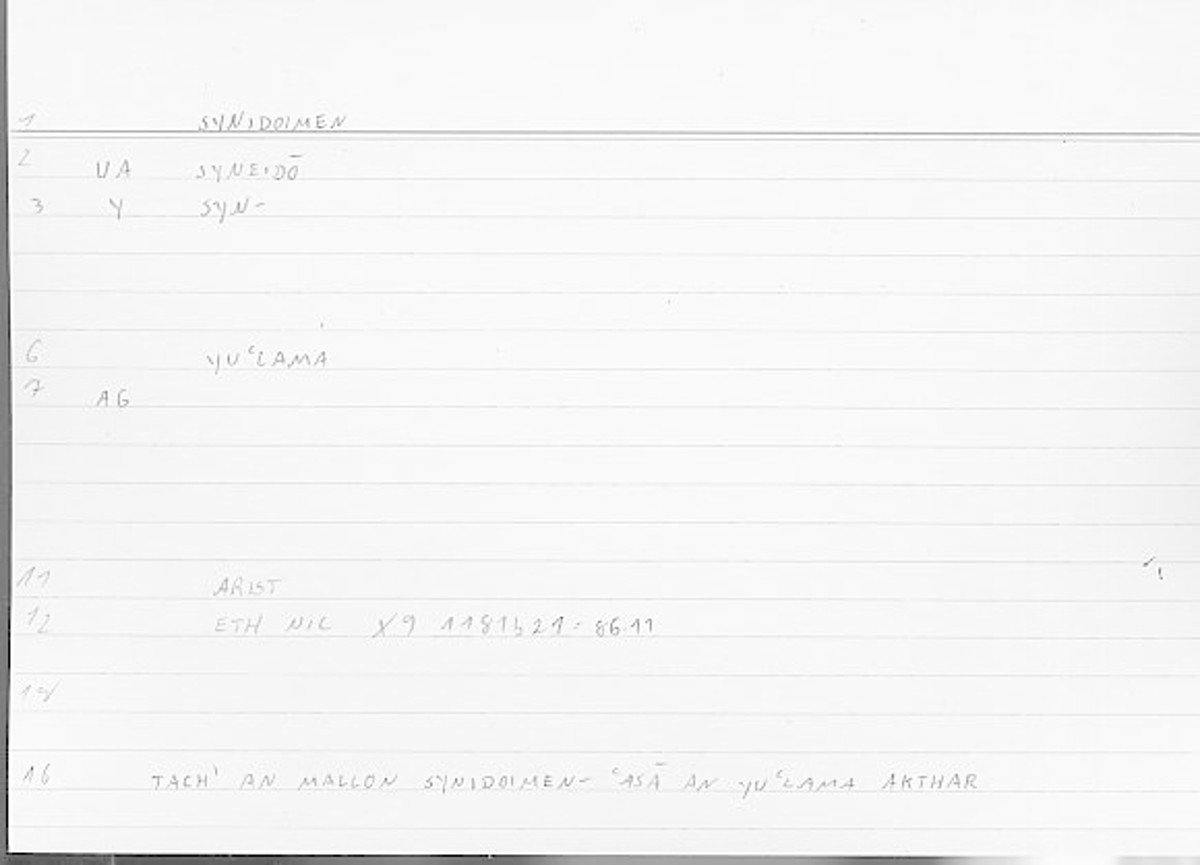 1 SYNIDOIMEN
2 VA SYNEIDŌ
3 Y SYN-
6 YUʿLAMA
7 AG
11 ARIST
12 ETH NIC X9 1181b21: 86.11
16 TACH' AN MALLON SYNIDOIMEN- ʿASĀ AN YUʿLAMA AKTHAR